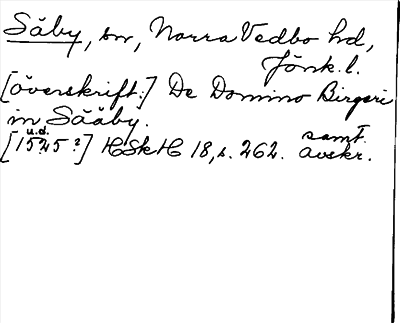 Säby, sn, Norra Vedbo hd,
Jönk. l.
[överskrift:] De Domino Birgeri
in Sääby.
u.d. samt.
[1525?] HSkH 18, s. 262. avskr.